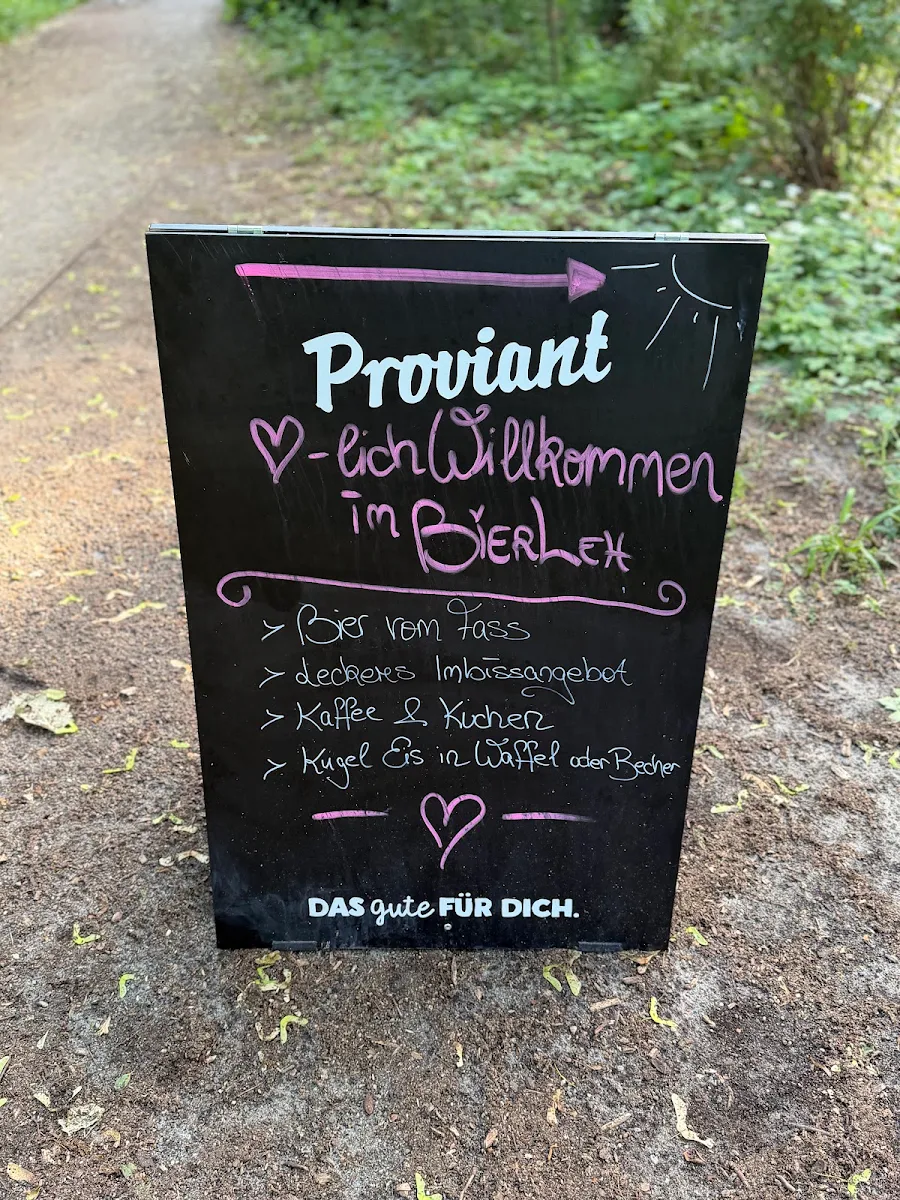 Proviant
♡-lich Willkommen
im BierLeh
> Bier vom Fass
> leckeres Imbissangebot
> Kaffee & Kuchen
> Kugel Eis in Waffel oder Becher
DAS gute FÜR DICH.